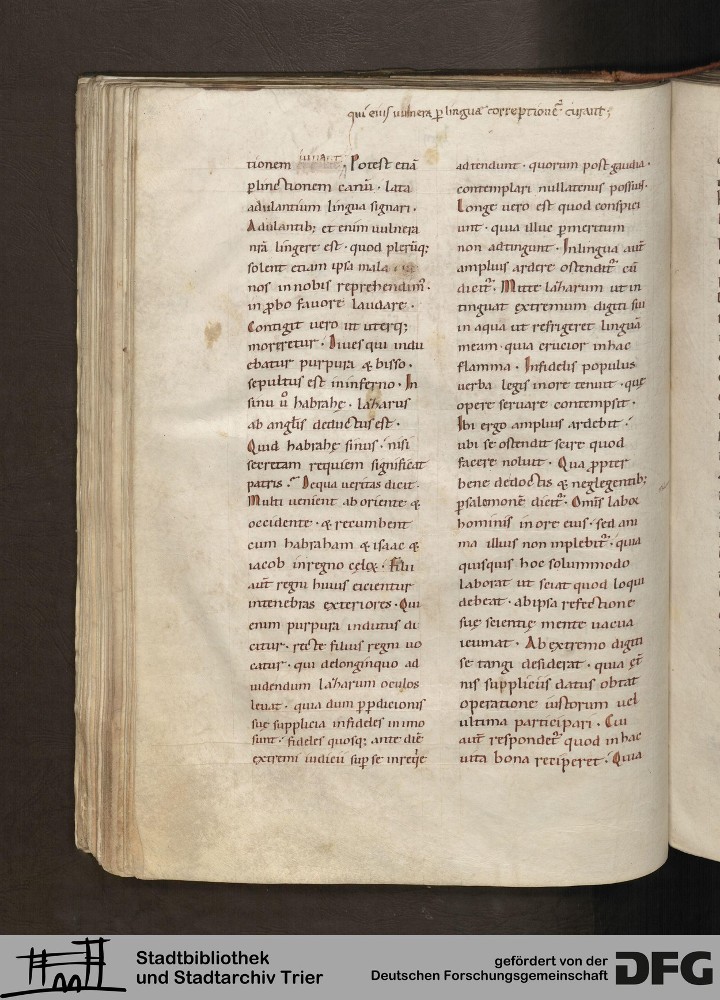 qui eius uulnera ꝑ linguā correptionē curant;
tionem iuuant; Potest etiā
ꝑlinctionem canū · lata
adulantium lingua signari ·
Adulantib; et enim uulnera
nr̄a lingere est · quod plerūq;
solent etiam ipsa mala ·
nos in nobis reprehendim᷒ ·
in ꝓbo fauore laudare ·
Contigit uero ut uterq;
moreretur · Diues qui indu
ebatur purpura & bisso ·
sepultus est in inferno · In
sinu u᷒ habrahę · lazarus
ab angłis deductus est ·
Quid habrahę sinus · nisi
secretam requiem significat
patris · De qua ueritas dicit ·
Multi uenient ab oriente &
occidente · & recumbent
cum habraham & isaac &
iacob in regno cęloꝝ · Filii
aut̄ regni huius eicientur
in tenebras exteriores · Qui
enim purpura indutus di
citur · recte filius regni uo
catur · qui de longinquo ad
uidendum lazarum oculos
leuat · quia dum ꝓ ꝑditionis
suę supplicia infideles in imo
sunt · fideles quosq; ante diē
extremi iudicii suꝑ se in requie
adtendunt · quorum post gaudia ·
contemplari nullatenus possum᷒ ·
Longe uero est quod conspici
unt · quia illuc ꝑ meritum
non adtingunt · In lingua aut̄
amplius ardere ostendit᷒ cū
dicit᷒ · Mitte lazarum ut in
tinguat extremum digiti sui
in aqua ut refrigeret linguā
meam · quia crucior in hac
flamma · Infidelis populus
uerba legis in ore tenuit · quę
opere seruare contempsit ·
Ibi ergo amplius ardebit ·
ubi se ostendit scire quod
facere noluit · Qua ꝓpter
bene de doctis & neglegentib;
ꝑ salomonē dicit᷒ · Omīs labor
hominis in ore eius · sed ani
ma illius non implebit᷒ · quia
quisquis hoc solummodo
laborat ut sciat quod loqui
debeat · ab ipsa refectione
suę scientię mente uacua
ieiunat · Ab extremo digiti
se tangi desiderat · quia ęt̄
nis suppliciis datus obtat
operatione iustorum uel
ultima participari · Cui
aut̄ respondet᷒ quod in hac
uita bona reciperet · Quia
Stadtbibliothek
und Stadtarchiv Trier
gefördert von der
Deutschen Forschungsgemeinschaft
DFG